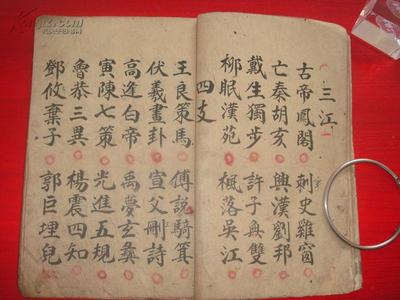 三江
古帝鳳閣 刺史雞窗
亡秦胡亥 興漢劉邦
戴生獨步 許子無雙
柳眠漢苑 楓落吳江
四支
王良策馬 傅說騎箕
伏羲畫卦 宣父刪詩
高逢白帝 禹夢玄彝
寅陳七策 光進五規
魯恭三異 楊震四知
鄧攸棄子 郭巨埋兒